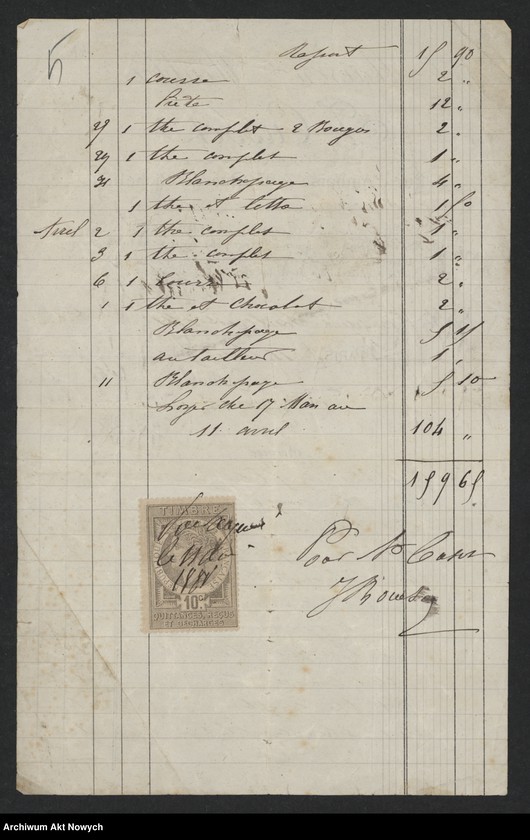 5
Report 15 90
1 course 2 "
12 "
29 1 the complet 2 Bougies 2 "
29 1 the complet 1 "
31 Blanchissage 4 "
1 the et 1 50
Avril 2 1 the complet 1 "
3 1 the complet 1 "
6 1 course 2 "
1 1 thé et Chocolat 2 "
Blanchissage 5 15
au tailleur 1 "
11 Blanchissage 5 10
Loyer du 17 Mars au
11 avril 104 "
159 65
TIMBRE
Pour acquit
le 11
10 c
QUITTANCES, REÇUS
ET DÉCHARGES
Pour Mr
Archiwum Akt Nowych